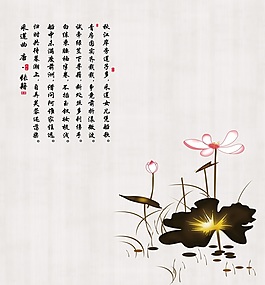 秋江岸边莲子多,采莲女儿凭船歌。
青房圆实齐戢戢,争前竞折漾微波。
试牵绿茎下寻藕,断处丝多刺伤手。
白练束腰袖半卷,不插玉钗妆梳浅。
船中未满度前洲,借问阿谁家住远。
归时共待暮潮上,自弄芙蓉还荡桨。
采莲曲 唐·张籍